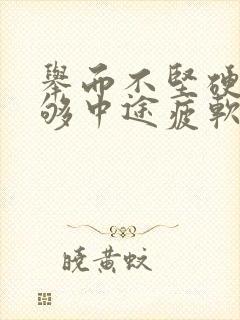 舉而不堅硬
够中途疲軟
晓黄蚊